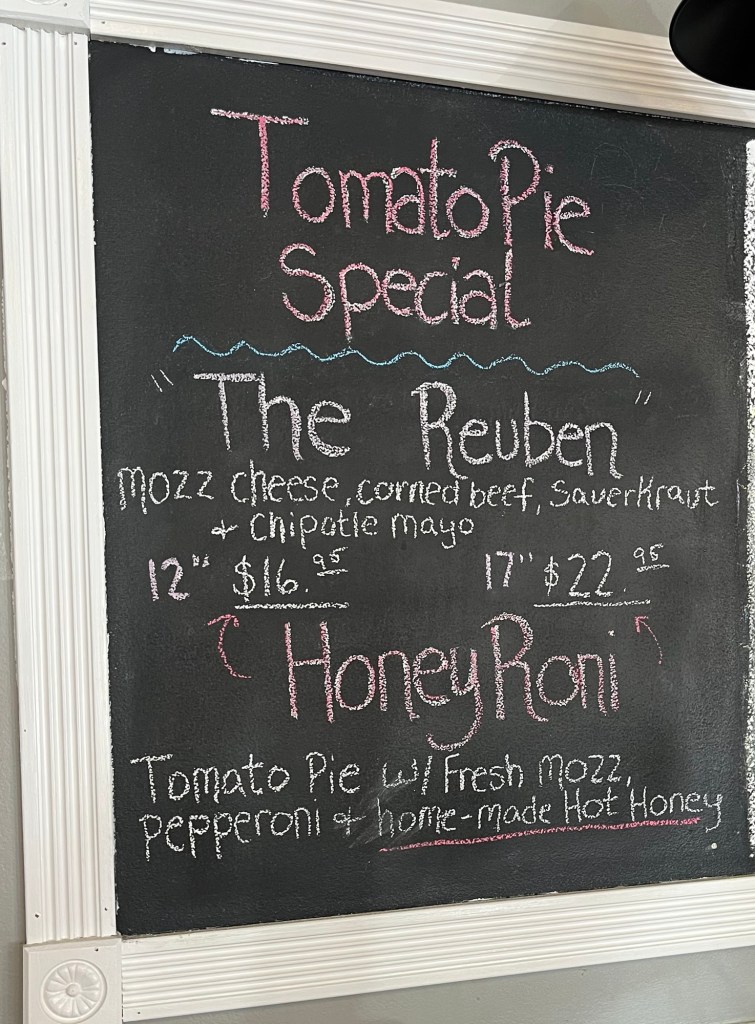 Tomato Pie
Special
"The Reuben"
mozz cheese, corned beef, Sauerkraut
& Chipotle mayo
12" $16.95 17" $22.95
Honey Roni
Tomato Pie w/ Fresh mozz,
pepperoni & home-made Hot Honey